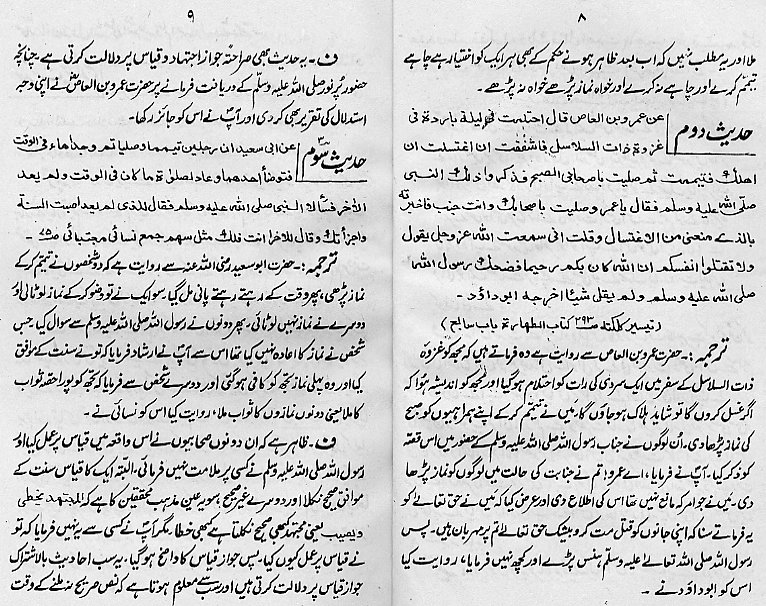 ۸
ملا اور یہ مطلب نہیں کہ اب بعد ظاہر ہونے حکم کے بھی ہر ایک کو اختیار ہے چاہے
تیمم کرے اور چاہے نہ کرے اور خواہ نماز پڑھے خواہ نہ پڑھے۔
حدیث دوم
عن عمرو بن العاص قال احتلمت فی لیلۃ باردۃ فی
غزوۃ ذات السلاسل فاشفقت ان اغتسلت ان
اھلك فتیممت ثم صلیت باصحابی الصبح فذکروا ذلك النبی
صلی اللہ علیہ وسلم فقال یا عمرو صلیت باصحابك وانت جنب فاخبرتہ
بالذی منعنی من الاغتسال وقلت انی سمعت اللہ عزوجل یقول
ولا تقتلوا انفسکم ان اللہ کان بکم رحیما فضحك رسول اللہ
صلی اللہ علیہ وسلم ولم یقل شیئا اخرجہ ابوداؤد۔
(تیسیر کلکتہ ص۲۹۳ کتاب الطہارۃ باب سابع)
ترجمہ:۔ حضرت عمرو بن العاص سے روایت ہے وہ فرماتے ہیں کہ مجھ کو غزوہ
ذات السلاسل کے سفر میں ایک سردی کی رات کو احتلام ہوگیا اور مجھ کو اندیشہ ہوا کہ
اگر غسل کروں گا تو شاید ہلاک ہو جاؤں گا، میں نے تیمم کرکے اپنے ہمراہیوں کو صبح
کی نماز پڑھا دی۔ ان لوگوں نے جناب رسول اللہ صلی اللہ علیہ وسلم کے حضور میں اس قصہ
کو ذکر کیا۔ آپ نے فرمایا، اے عمرو! تم نے جنابت کی حالت میں لوگوں کو نماز پڑھا
دی۔ میں نے جو امر کہ مانع غسل تھا اس کی اطلاع دی اور عرض کیا کہ میں نے حق تعالیٰ کو
یہ فرماتے سنا کہ اپنی جانوں کو قتل مت کرو بیشک حق تعالیٰ تم پر مہربان ہیں۔ پس
رسول اللہ صلی اللہ تعالیٰ علیہ وسلم ہنس پڑے اور کچھ نہیں فرمایا، روایت کیا
اس کو ابوداؤد نے۔
۹
ف۔ یہ حدیث بھی صراحۃً جواز اجتہاد و قیاس پر دلالت کرتی ہے۔ چنانچہ
حضور پرنور صلی اللہ علیہ وسلم کے دریافت فرمانے پر حضرت عمرو بن العاص نے اپنی وجہ
استدلال کی تقریر بھی کردی اور آپ نے اس کو جائز رکھا۔
حدیث سوم
عن ابی سعید ان رجلین تیمما وصلیا ثم وجدا ماء فی الوقت
فتوضأ احدھما وعاد لصلوٰتہ ما کان فی الوقت ولم یعد
الاٰخر فسألا النبی صلی اللہ علیہ وسلم فقال للذی لم یعد اصبت السنۃ
واجزأتك وقال للاٰخر انت فلك مثل سہم جمع نسائی مجتبائی ص۷۵
ترجمہ:۔ حضرت ابو سعید رضی اللہ عنہ سے روایت ہے کہ دو شخصوں نے تیمم کرکے
نماز پڑھی، پھر وقت کے رہتے رہتے پانی مل گیا۔ سو ایک نے تو وضو کرکے نماز لوٹالی اور
دوسرے نے نماز نہیں لوٹائی۔ پھر دونوں نے رسول اللہ صلی اللہ علیہ وسلم سے سوال کیا، جس
شخص نے نماز کا اعادہ نہیں کیا تھا اس سے آپ نے ارشاد فرمایا کہ تو نے سنت کے موافق
کیا اور وہ پہلی نماز تجھ کو کافی ہوگئی اور دوسرے شخص سے فرمایا کہ تجھ کو پورا حصہ ثواب
کا ملا یعنی دونوں نمازوں کا ثواب ملا، روایت کیا اس کو نسائی نے۔
ف۔ ظاہر ہے کہ ان دونوں صحابیوں نے اس واقعہ میں قیاس پر عمل کیا اور
رسول اللہ صلی اللہ علیہ وسلم نے کسی پر ملامت نہیں فرمائی، البتہ ایک کا قیاس سنت کے
موافق صحیح نکلا اور دوسرے کا غیر صحیح، سو یہ عین مذہب محققین کا ہے کہ المجتہد یخطی
ویصیب یعنی مجتہد کبھی صحیح نکلتا ہے کبھی خطا، مگر آپ نے کسی سے یہ نہیں فرمایا کہ تو
نے قیاس پر عمل کیوں کیا۔ پس جواز قیاس کا واضح ہوگیا، یہ سب احادیث بالاشتراک
جواز قیاس پر دلالت کرتی ہیں اور سب سے معلوم ہوتا ہے کہ نص صریح نہ ملنے کے وقت